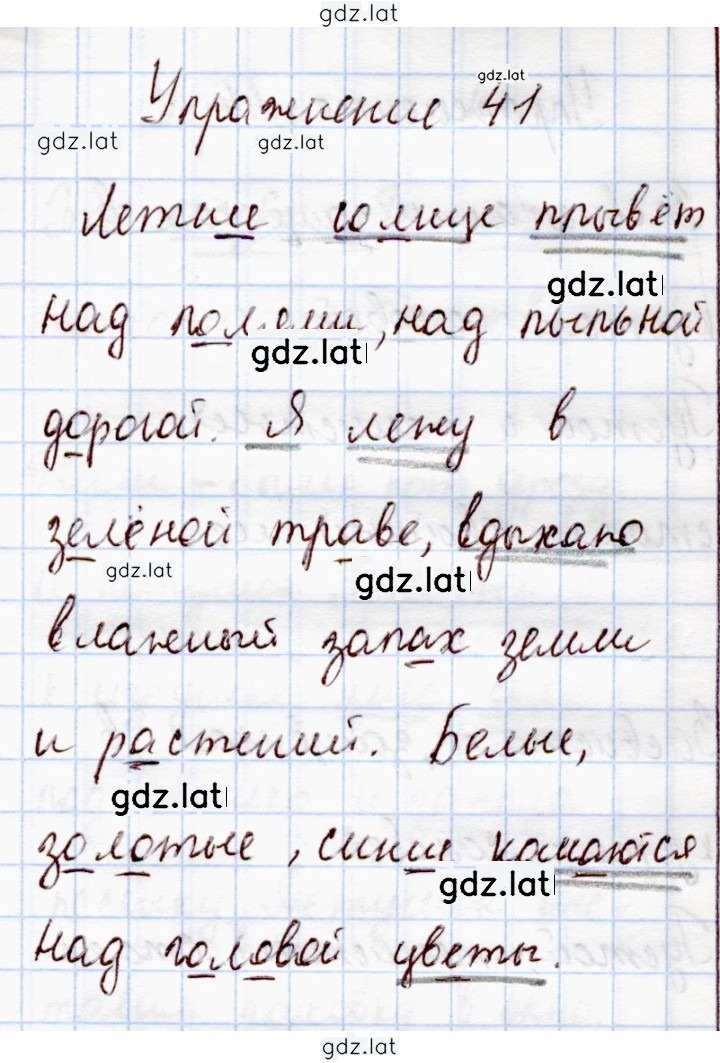 gdz.lat
gdz.lat
Упражнение 41
gdz.lat
gdz.lat
Летнее солнце плывёт
gdz.lat
над полями, над пыльной
gdz.lat
дорогой. Я лежу в
зелёной траве, вдыхаю
gdz.lat
gdz.lat
влажный запах земли
и растений. Белые,
gdz.lat
золотые, синие качаются
gdz.lat
над головой цветы.
gdz.lat